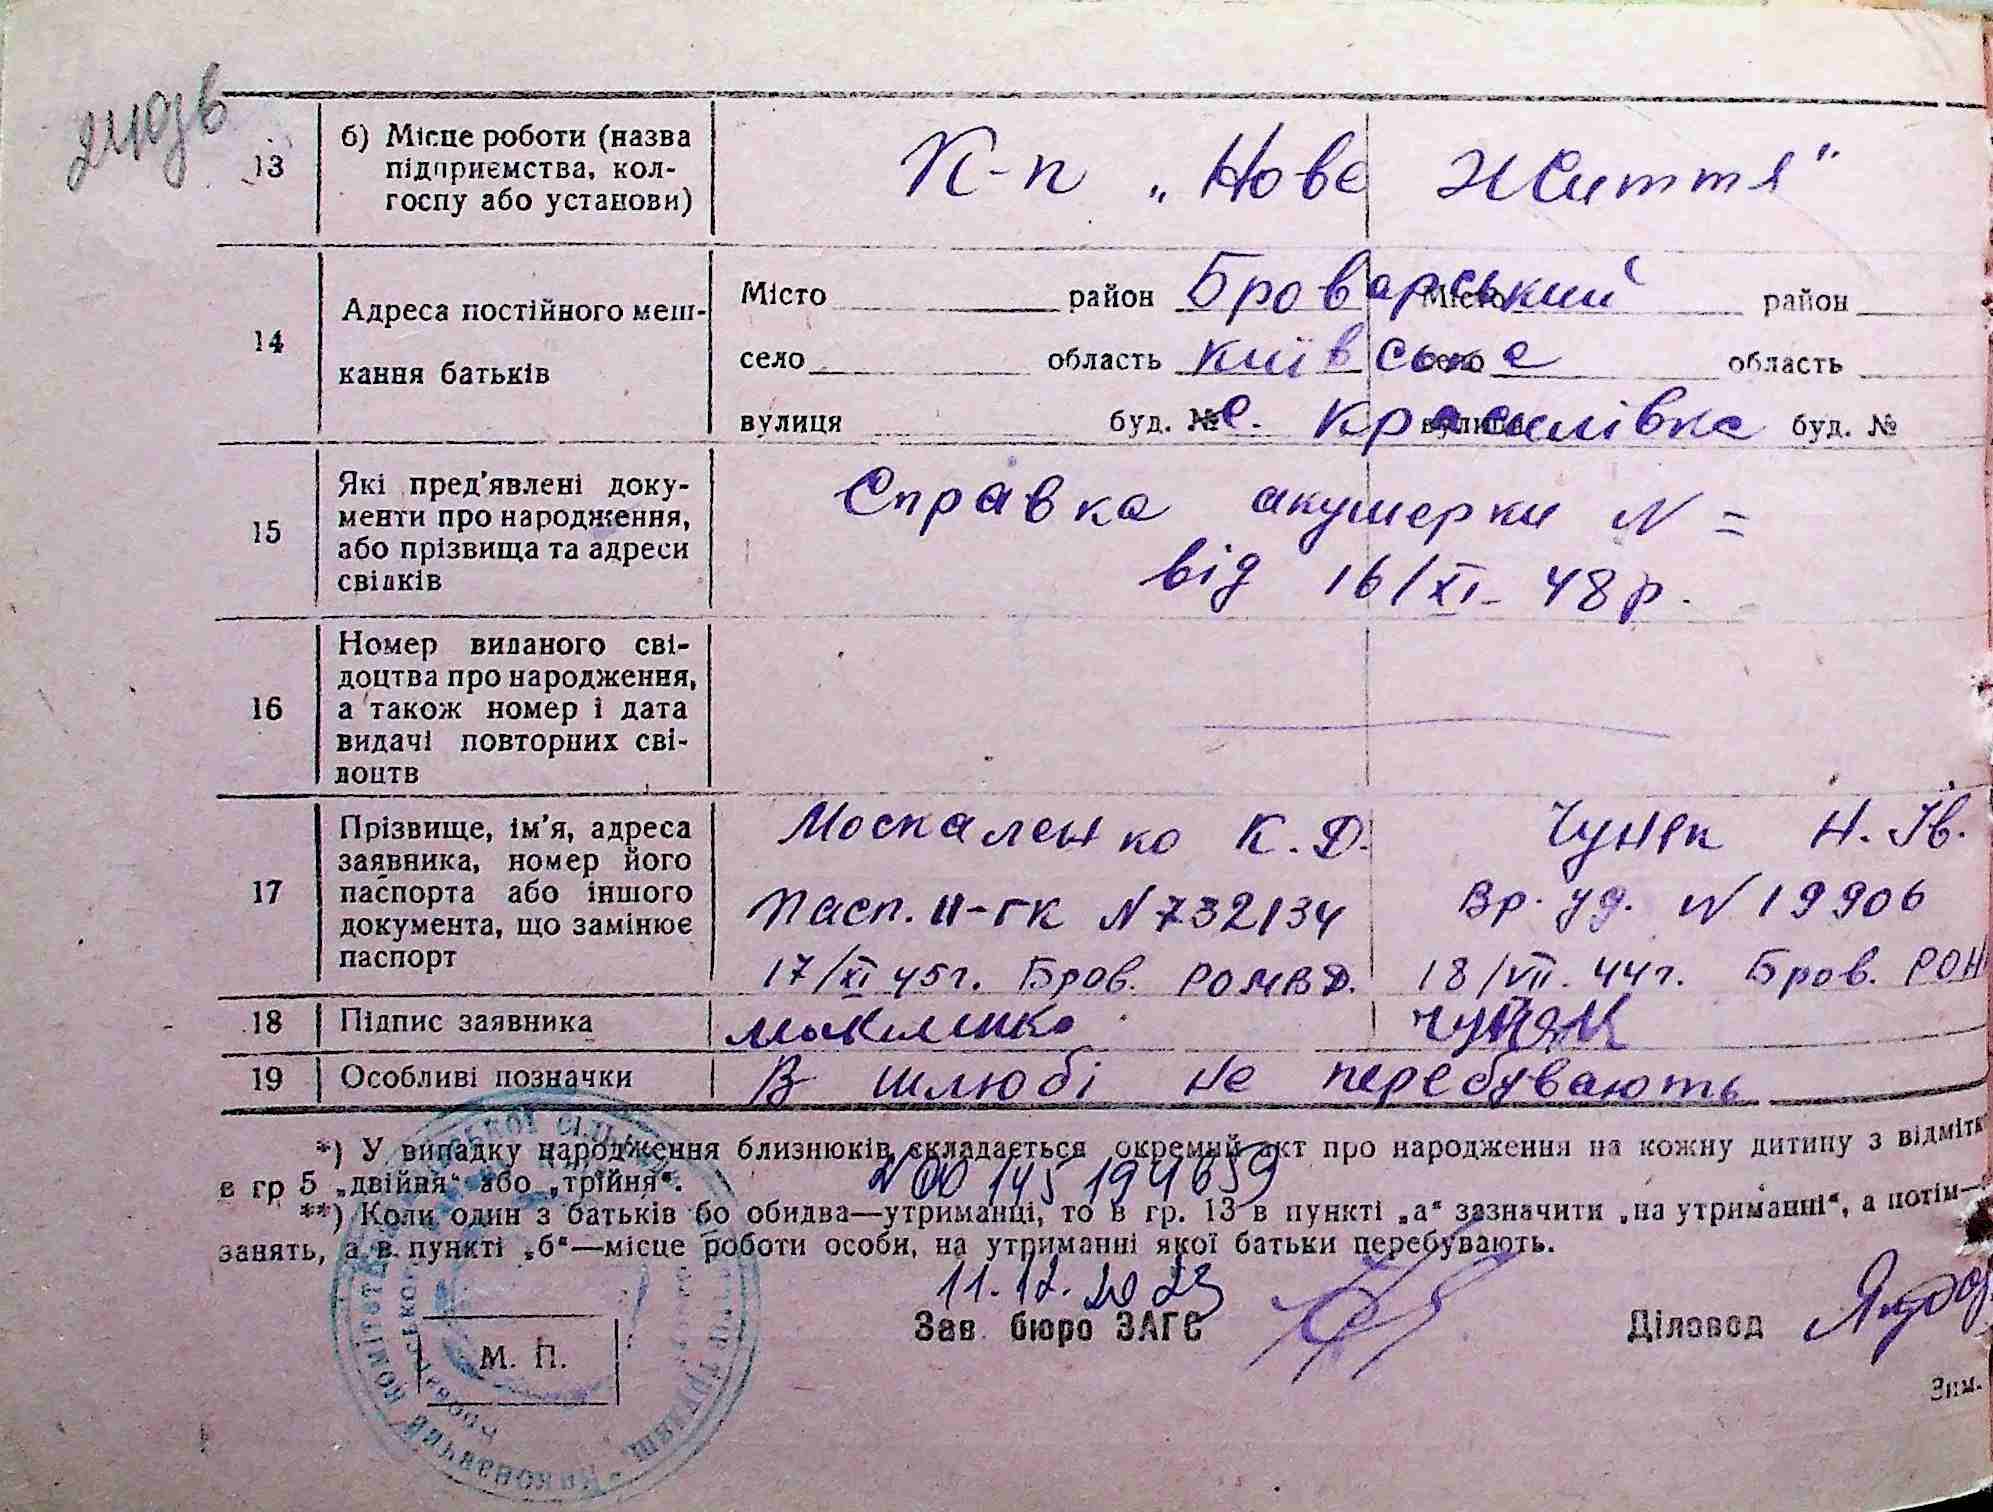 13 б) Місце роботи (назва
підприємства, кол-
госпу або установи)
К-п „Нове Життя"
14 Адреса постійного меш-
кання батьків
Місто район Броварський Місто район
село область Київська село область
вулиця буд. № с. Красилівка вулиця буд. №
15 Які пред'явлені доку-
менти про народження,
або прізвища та адреси
свідків
Справка акушерки N =
від 16/XI- 48 р.
16 Номер виданого сві-
доцтва про народження,
а також номер і дата
видачі повторних сві-
доцтв
17 Прізвище, ім'я, адреса
заявника, номер його
паспорта або іншого
документа, що замінює
паспорт
Москаленко К. Д.
Пасп. II-ГК N 732134
17/XI 45 г. Бров. РОМВД.
Чуняк Н. Ів.
Вр. уд. N 19906
18/VII. 44 г. Бров. РОН
18 Підпис заявника Чуняк
19 Особливі позначки В шлюбі не перебувають
*) У випадку народження близнюків складається окремий акт про народження на кожну дитину з відмітк
в гр 5 „двійня“ або „трійня“.
N 00145194659
**) Коли один з батьків бо обидва—утриманці, то в гр. 13 в пункті „а“ зазначити „на утриманні“, а потім—
занять, а в пункті „б“—місце роботи особи, на утриманні якої батьки перебувають.
11.12.2023
Зав. бюро ЗАГС Діловод
М. П.
Зам.